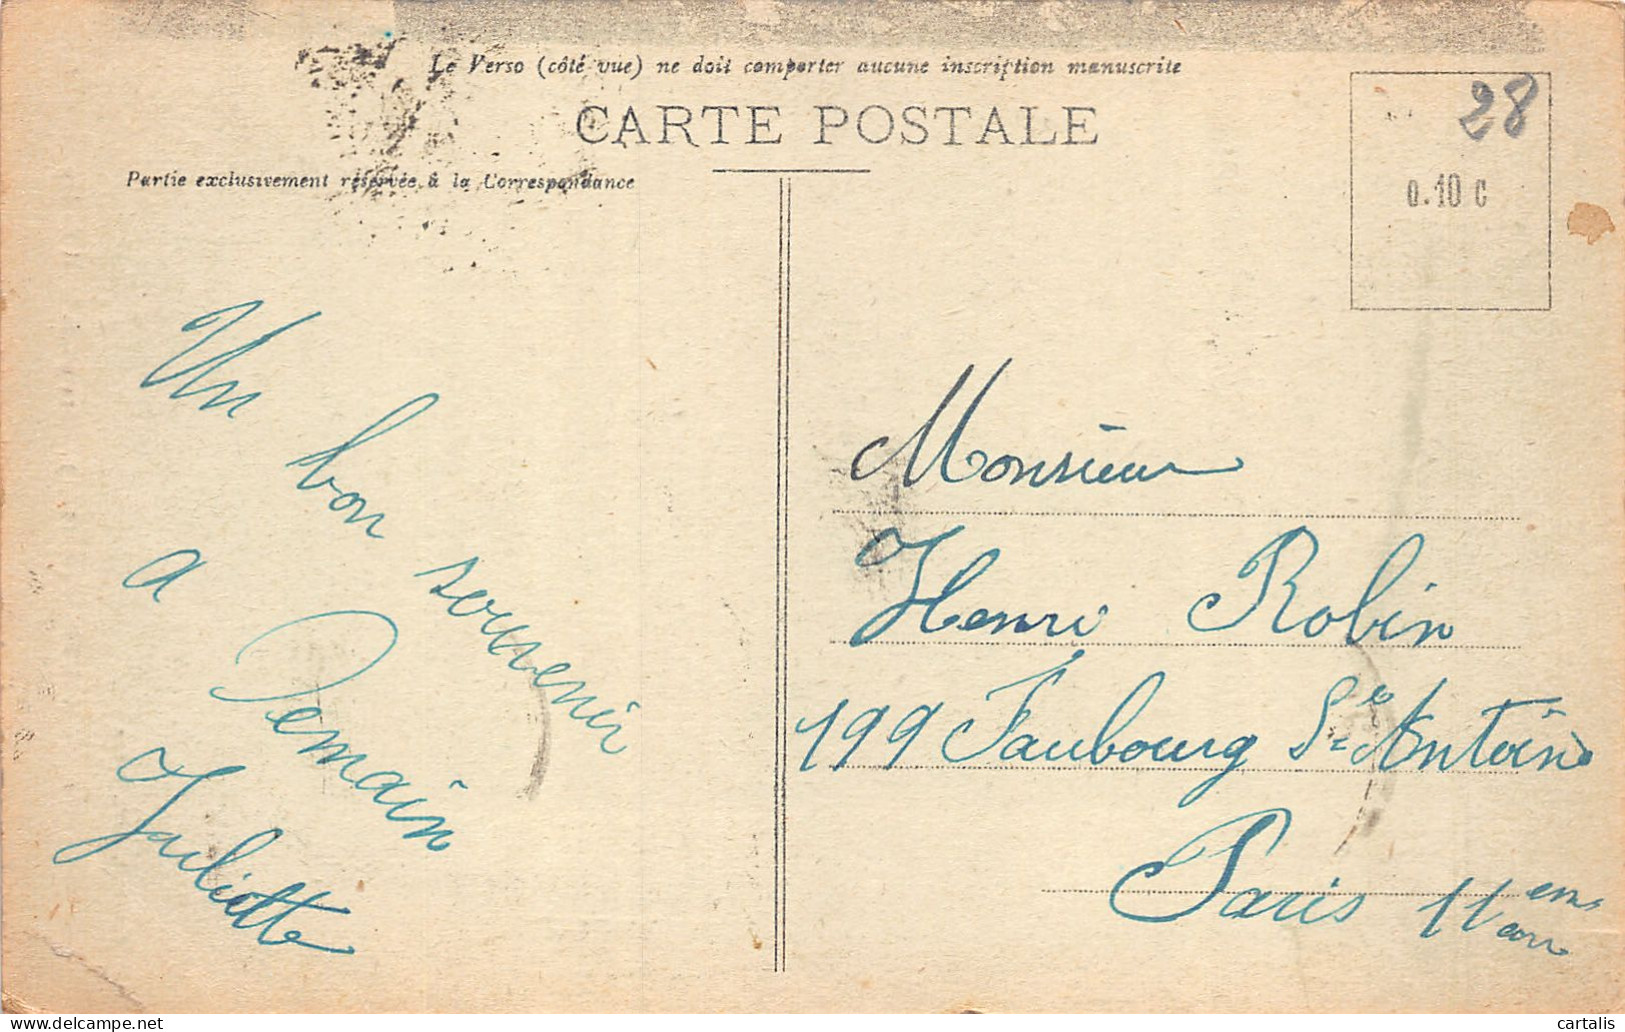 Le Verso (côté vue) ne doit comporter aucune inscription manuscrite
CARTE POSTALE
Partie exclusivement réservée à la Correspondance
28
0.10 C
Un bon souvenir
a Demain
Juliette
Monsieur
Henri Robin
199 Faubourg St Antoine
Paris 11em arr
cartalis
delcampe.net